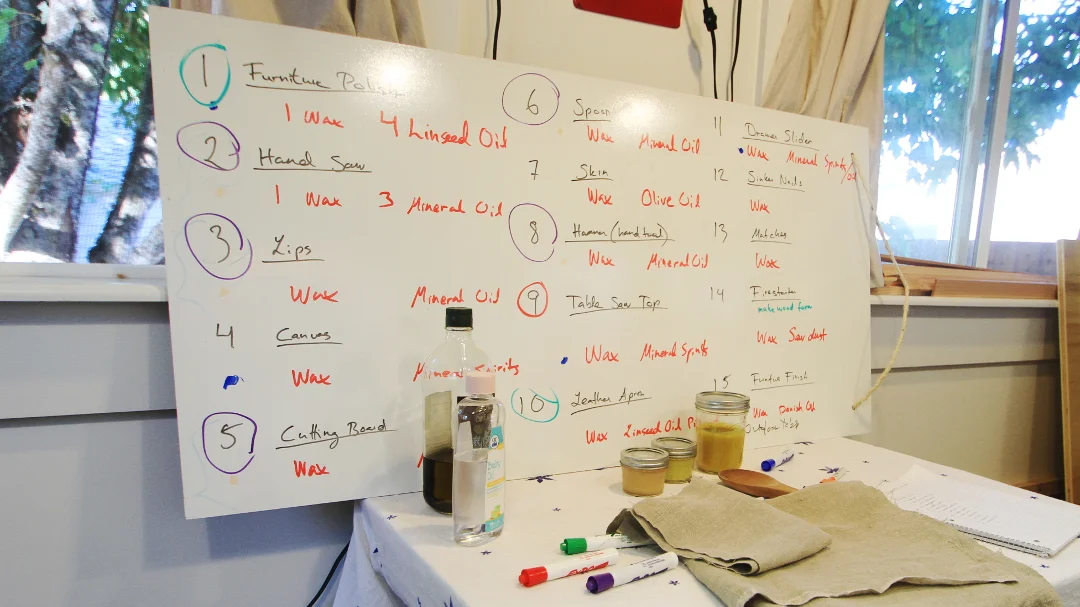 1 Furniture Polish
1 Wax 4 Linseed Oil
2 Hand Saw
1 Wax 3 Mineral Oil
3 Lips
Wax Mineral Oil
4 Canvas
Wax Mineral Spirits
5 Cutting Board
Wax
6 Spoon
Wax Mineral Oil
7 Skin
Wax Olive Oil
8 Hammer (hand tool)
Wax Mineral Oil
9 Table Saw Top
Wax Mineral Spirits
10 Leather Apron
Wax Linseed Oil Pi
11 Drawer Slider
Wax Mineral Spirits/
Oil
12 Sinker Nails
Wax
13 Matches
Wax
14 Firestarter
make wood form
Wax Sawdust
15 Finish
Wax Danish Oil